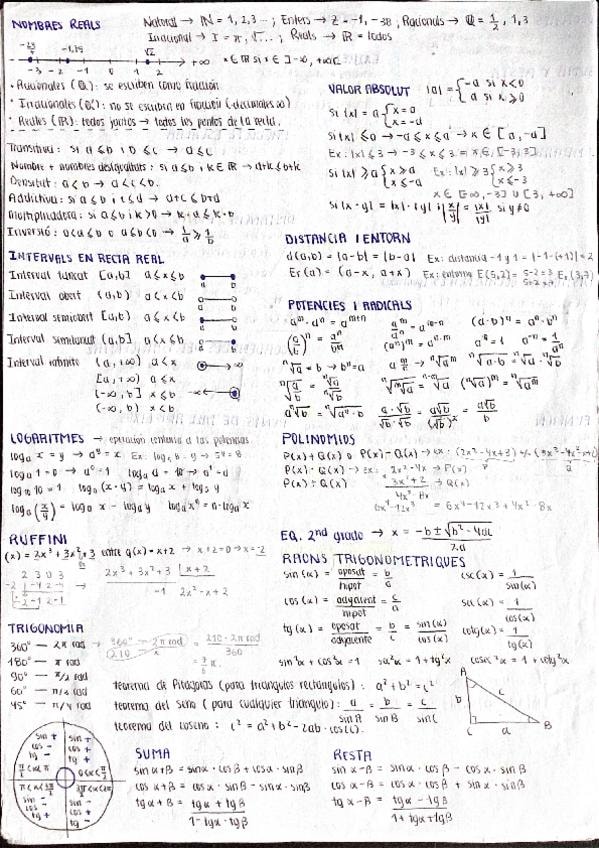 NOMBRES REALS
Natural → ℕ = 1, 2, 3 ... ; Enters → Z = -1, -38 ; Racionals → Q = 1/2, 1,3
Irracional → I = π, √... ; Reals → ℝ = todos
-3 -2 -1 0 1 2 +∞
• Racionales (Q): se escriben como fracción
• Irracionales (Q'): no se escriben en fracción (decimales ∞)
• Reales (ℝ): todos juntos → todos los puntos de la recta.
Transitiva: si a ≤ b i b ≤ c → a ≤ c
Nombre + nombres desigualtats: si a ≤ b i k ∈ ℝ → a+k ≤ b+k
Densitat: a < b → a < c < b.
Addictiva: si a ≤ b i c ≤ d → a+c ≤ b+d
Multiplicadora: si a ≤ b i k > 0 → k·a ≤ k·b
Inversió: 0 < a ≤ b o a ≤ b < 0 → 1/a ≥ 1/b
VALOR ABSOLUT |a| = { -a si x < 0
a si x ≥ 0
Si |x| = a { x = a
x = -a
Si |x| ≤ a → -a ≤ x ≤ a → x ∈ [a, -a]
Ex: |x| ≤ 3 → -3 ≤ x ≤ 3 = x ∈ [-3, 3]
Si |x| ≥ a { x ≥ a Ex: |x| ≥ 3 { x ≥ 3
x ≤ -a x ≤ -3
x ∈ [-∞, -3] ∪ [3, +∞]
Si |x · y| = |x| · |y| i |x/y| = |x|/|y| si y ≠ 0
DISTANCIA I ENTORN
d(a,b) = |a-b| = |b-a| Ex: distancia -1 y 1 = |-1-(+1)| = 2
Er(a) = (a-x, a+x) Ex: entorno E(5,2) = 5-2=3 5+2=7 E, (3,7)
INTERVALS EN RECTA REAL
Interval tancat [a,b] a ≤ x ≤ b
Interval obert (a,b) a < x < b
Interval semiobert [a,b) a ≤ x < b
Interval semitancat (a,b] a < x ≤ b
Interval infinito (a, +∞) a < x
[a, +∞) a ≤ x
(-∞, b] x ≤ b
(-∞, b) x < b
POTENCIES I RADICALS
aᵐ · aⁿ = aᵐ⁺ⁿ aᵐ/aⁿ = aᵐ⁻ⁿ (a·b)ⁿ = aⁿ·bⁿ
(a/b)ⁿ = aⁿ/bⁿ (aᵐ)ⁿ = aⁿ·ᵐ a⁰ = 1 a⁻ⁿ = 1/aⁿ
ⁿ√a = b → bⁿ = a a^(m/n) → ⁿ√aᵐ ⁿ√a·b = ⁿ√a · ⁿ√b
ⁿ√(a/b) = ⁿ√a/ⁿ√b ⁿ√ᵐ√a = ⁿ·ᵐ√a (ⁿ√a)ᵐ = ⁿ√aᵐ
a ⁿ√b = ⁿ√aⁿ·b a·√b/√b·√b = a√b/(√b)² = a√b/b
LOGARITMES → operación contraria a las potencias
logₐ x = y → aʸ = x Ex: log₅ 8 = y → 5ʸ = 8
logₐ 1 = 0 → a⁰ = 1 logₐ a = 1 → a¹ = a
log₁₀ 10 = 1 logₐ (x·y) = logₐ x + logₐ y
logₐ (x/y) = logₐ x - logₐ y logₐ xⁿ = n·logₐ x
POLINOMIOS
P(x) + Q(x) o P(x) - Q(x) → ex:
P(x) · Q(x) → ex: 2x² - 4x → P(x)
P(x) : Q(x) 3x² + 2 → Q(x)
4x² 8x
6x⁴ - 12x³ = 6x⁴ - 12x³ + 4x² - 8x
RUFFINI
(x) = 2x³ + 3x² + 3 entre q(x) = x+2 → x+2=0 → x = -2
2 3 0 3
2x³ + 3x² + 3 | x + 2
-2
-2 -1 2 -1
-1 2x² - x + 2
EQ. 2nd grado → x = -b ± √b² - 4ac / 2·a
RAONS TRIGONOMETRIQUES
sin (α) = oposat/hipot = b/a csc(α) = 1/sin(α)
cos (α) = adjacent/hipot = c/a sec(α) = 1/cos(α)
tg (α) = oposat/adjacente = b/c = sin(α)/cos(α) cotg(α) = 1/tg(α)
sin²α + cos²α = 1 sec²α = 1 + tg²α cosec²α = 1 + cotg²α
TRIGONOMIA
360° — 2π rad → 360° — 2π rad = 210 · 2π rad / 360
210 — x
180° — π rad = 7/6 π
90° — π/2 rad
60° — π/3 rad
45° — π/4 rad
teorema de Pitágoras (para triangulos rectángulos): a² + b² = c²
teorema del seno (para cualquier triangulo): a/sin A = b/sin B = c/sin C
teorema del coseno: c² = a² + b² - 2ab · cos(C).
A
b
c
C a B
sin + sin +
cos - cos +
tg - tg +
π/2 < α < π 0 < α < π/2
π < α < 3π/2 3π/2 < α < 2π
sin - sin -
cos - cos +
tg + tg -
SUMA
sin α+β = sinα · cosβ + cosα · sinβ
cos α+β = cosα · cosβ - sinα · sinβ
tg α+β = tgα + tgβ / 1 - tgα · tgβ
RESTA
sin α-β = sinα · cosβ - cosα · sinβ
cos α-β = cosα · cosβ + sinα · sinβ
tg α-β = tgα - tgβ / 1 + tgα · tgβ